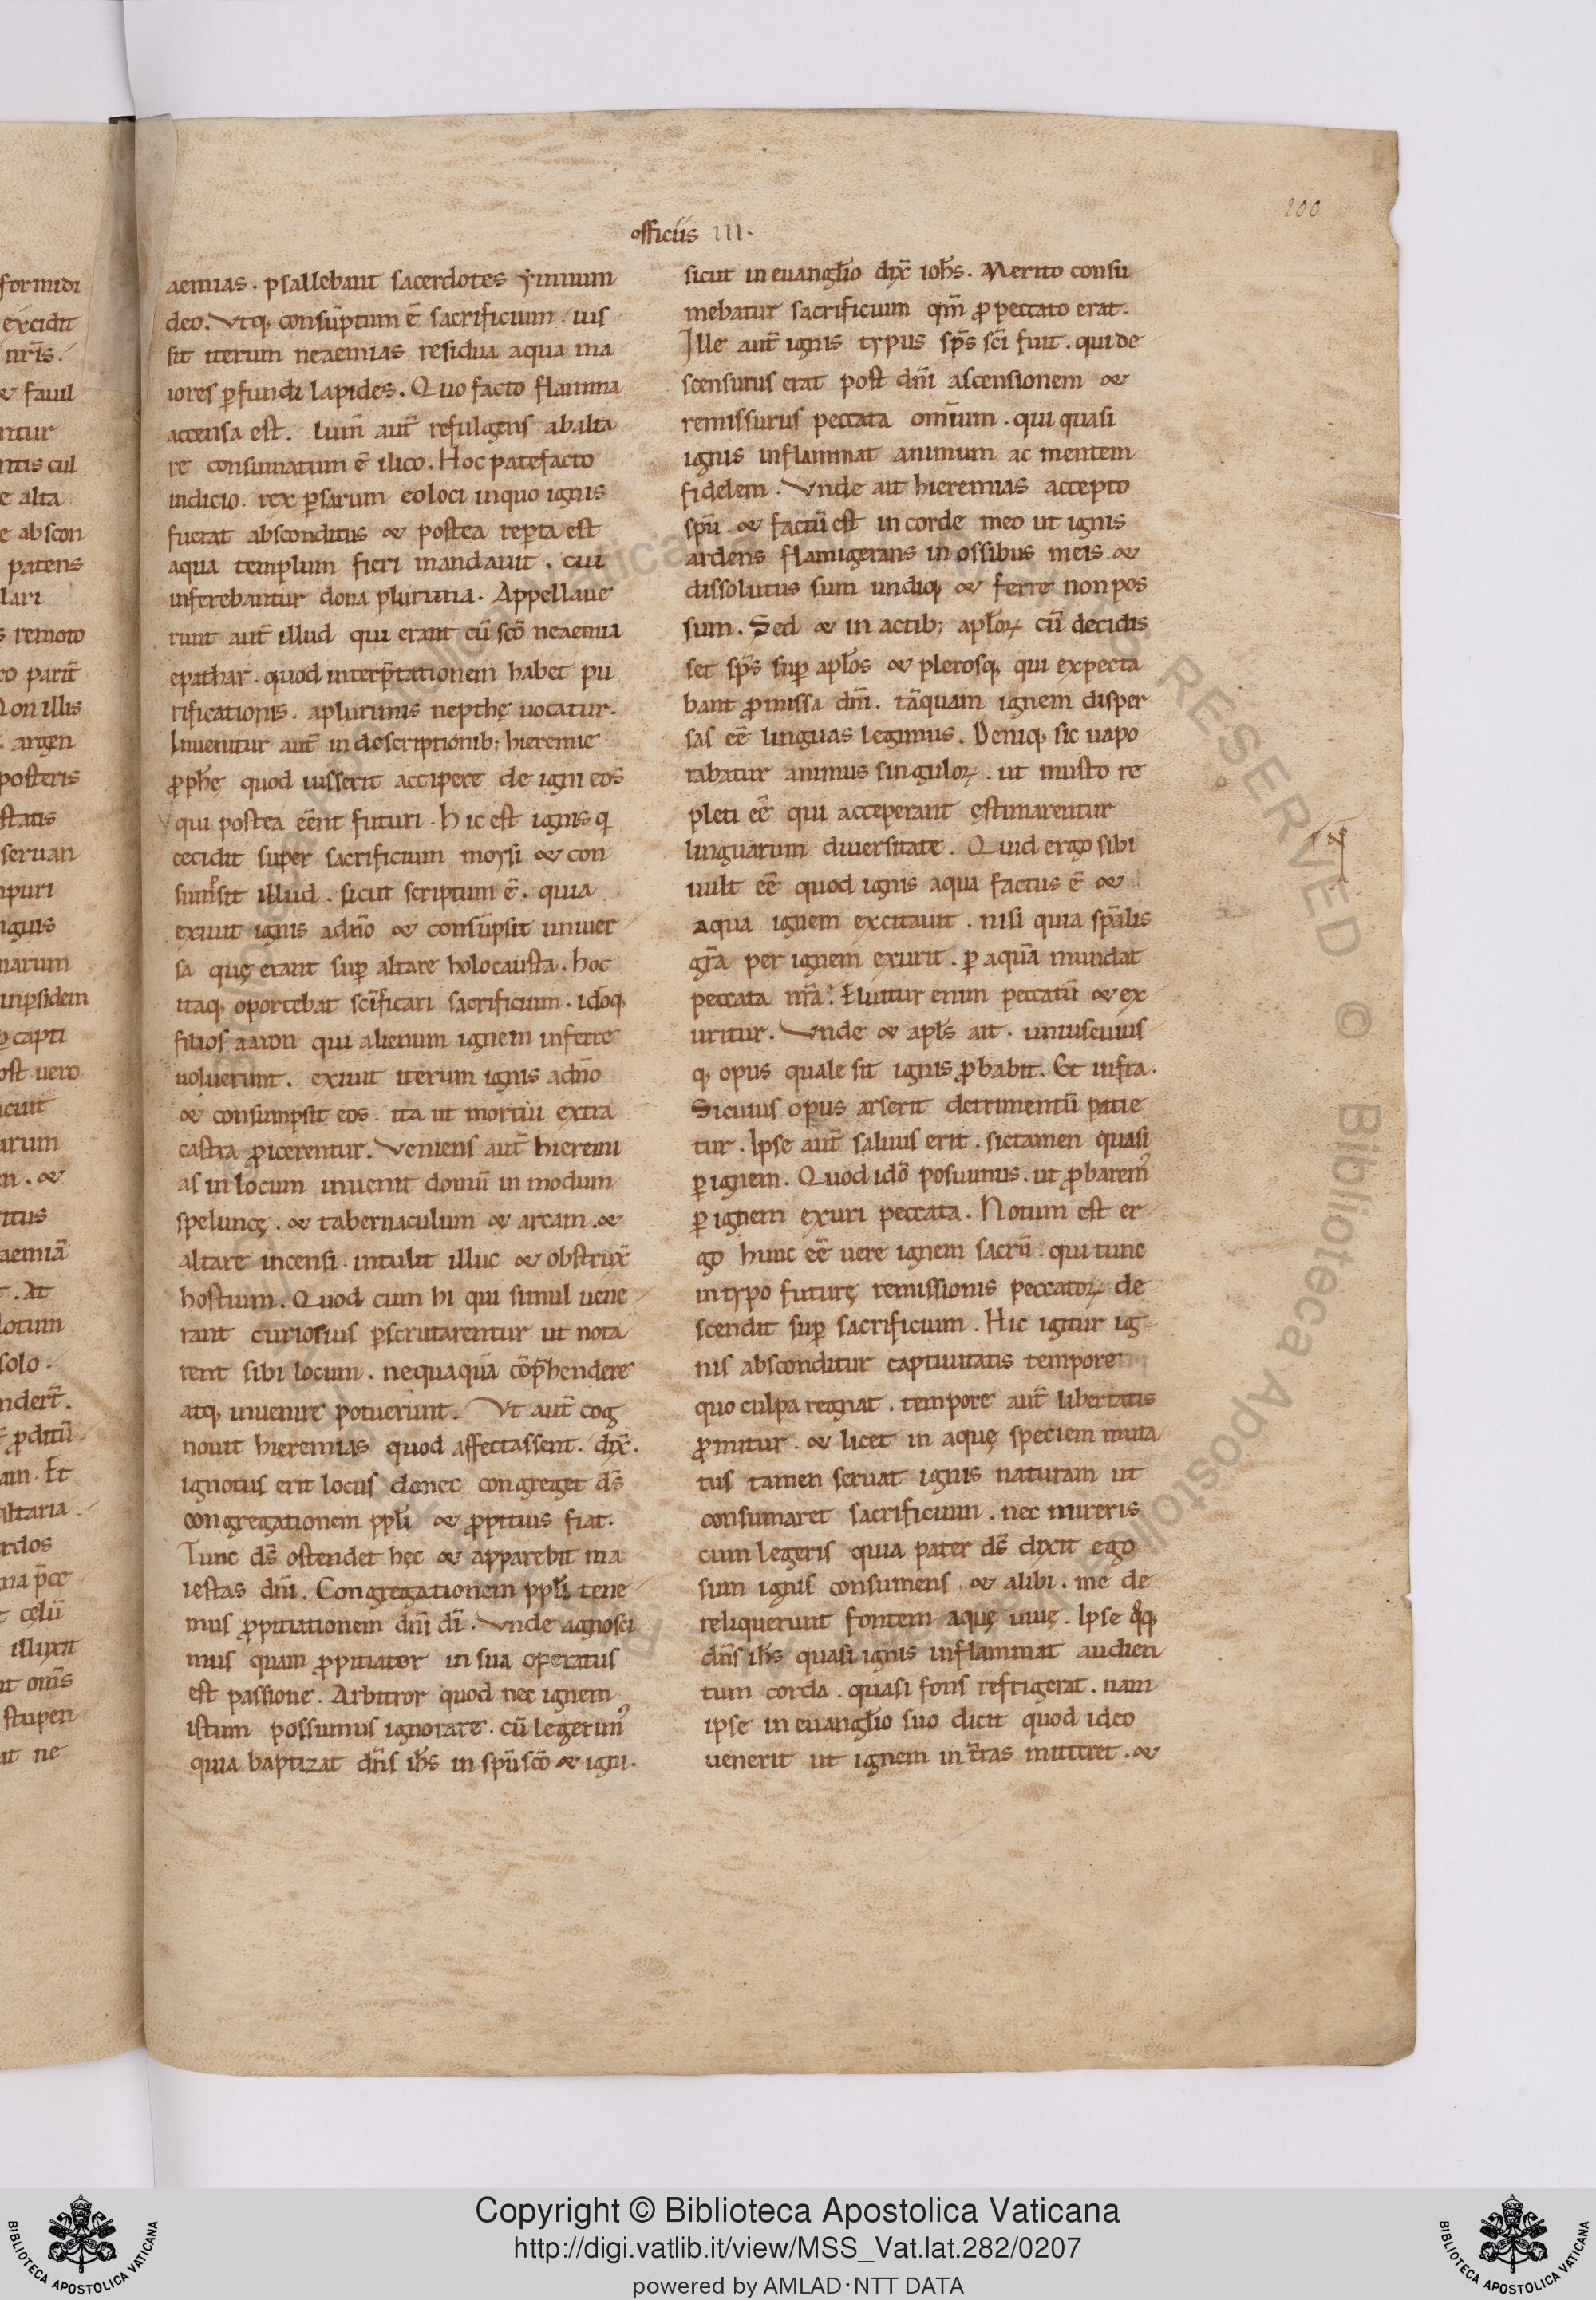 officiis III.
200
aemias . psallebant sacerdotes ymnum
deo. Vtq; consūptum ē sacrificium . ius
sit iterum neaemias residua aqua ma
iores ꝑfundi lapides. Quo facto flamma
accensa est. lum̄ aut̄ refulgens ab alta
re consumatum ē ilico. Hoc patefacto
indicio . rex ꝑsarum eo loci in quo ignis
fuerat absconditus & postea reꝑta est
aqua templum fieri mandauit . cui
inferebantur dona plurima. Appellaue
runt aut̄ illud qui erant cū sc̄o neaemia
epathar . quod interp̄tationem habet pu
rificationis . a plurimis nepthę uocatur.
Inuenitur aut̄ in descriptionib; hieremie
ꝓph̄ę quod iusserit accipere de igni eos
qui postea eēnt futuri . Hic est ignis q̇
cecidit super sacrificium moysi & con
sumpsit illud . sicut scriptum ē . quia
exiuit ignis a dn̄o & consūpsit uniuer
sa quę erant suꝑ altare holocausta. hoc
itaq; oportebat sc̄ificari sacrificium . idoq;
filios aaron qui alienum ignem inferre
uoluerunt . exiuit iterum ignis a dn̄o
& consumpsit eos . ita ut mortui extra
castra ꝓicerentur. Veniens aut̄ hieremi
as in locum inuenit domū in modum
speluncę . & tabernaculum & arcam . &
altare incensi . intulit illuc & obstrux̄
hostium. Quod cum hi qui simul uene
rant curiosius ꝑscrutarentur ut nota
rent sibi locum . nequaquā cōp̄hendere
atq; inuenire potuerunt. Vt aut̄ cog
nouit hieremias quod affectassent . dix̄.
ignotus erit locus donec congreget ds̄
congregationem ppl̄i & ꝓpitius fiat.
Tunc ds̄ ostendet hęc & apparebit ma
iestas dn̄i. Congregationem ppl̄i tene
mus ꝓpitiationem dn̄i dī . Vnde agnosci
mus quam ꝓpitiator in sua operatus
est passione. Arbitror quod nec ignem
istum possumus ignorare . cū legerimꝰ
quia baptizat dn̄s ih̄s in spū sc̄o & igni.
sicut in euangl̄io dix̄ ioh̄s. Merito consu
mebatur sacrificium qm̄ ꝓ peccato erat.
Ille aut̄ ignis typus sp̄s sc̄i fuit . qui de
scensurus erat post dn̄i ascensionem &
remissurus peccata omīum . qui quasi
ignis inflammat animum ac mentem
fidelem . Vnde ait hieremias accepto
spū . & factū est in corde meo ut ignis
ardens flamigerans in ossibus meis . &
dissolutus sum undiq; & ferre non pos
sum. Sed & in actib; apl̄oꝝ cū decidis
set sp̄s suꝑ apl̄os & plerosq; qui expecta
bant ꝓmissa dn̄i . tāquam ignem disper
sas eē linguas legimus. Deniq; sic uapo
rabatur animus singuloꝝ . ut musto re
pleti eē qui acceperant ęstimarentur
linguarum diuersitate. Quid ergo sibi
uult eē quod ignis aqua factus ē &
aqua ignem excitauit . nisi quia sp̄alis
gr̄a per ignem exurit . ꝑ aquā mundat
peccata nr̄a . Eluitur enim peccatū & ex
uritur. Vnde & apl̄s ait . uniuscuius
q; opus quale sit ignis ꝓbabit. Et infra.
Si cuius opus arserit detrimentū patie
tur . Ipse aut̄ saluus erit . sic tamen quasi
ꝑ ignem. Quod idō posuimus . ut ꝓbaremꝰ
ꝑ ignem exuri peccata. Notum est er
go hunc eē uere ignem sacrū . qui tunc
in typo futurę remissionis peccatoꝝ de
scendit suꝑ sacrificium. Hic igitur ig
nis absconditur captiuitatis tempore
quo culpa regnat . tempore aut̄ libertatis
ꝓmitur . & licet in aquę speciem muta
tus tamen seruat ignis naturam ut
consumaret sacrificium . nec mireris
cum legeris quia pater ds̄ dixit ego
sum ignis consumens . & alibi . me de
reliquerunt fontem aquę uiuę . Ipse qͦq;
dn̄s ih̄s quasi ignis inflammat audien
tum corda . quasi fons refrigerat . nam
ipse in euangl̄io suo dicit quod ideo
uenerit ut ignem in t̄ras mitteret . &
Copyright © Biblioteca Apostolica Vaticana
http://digi.vatlib.it/view/MSS_Vat.lat.282/0207
powered by AMLAD·NTT DATA
BIBLIOTECA APOSTOLICA VATICANA
BIBLIOTECA APOSTOLICA VATICANA